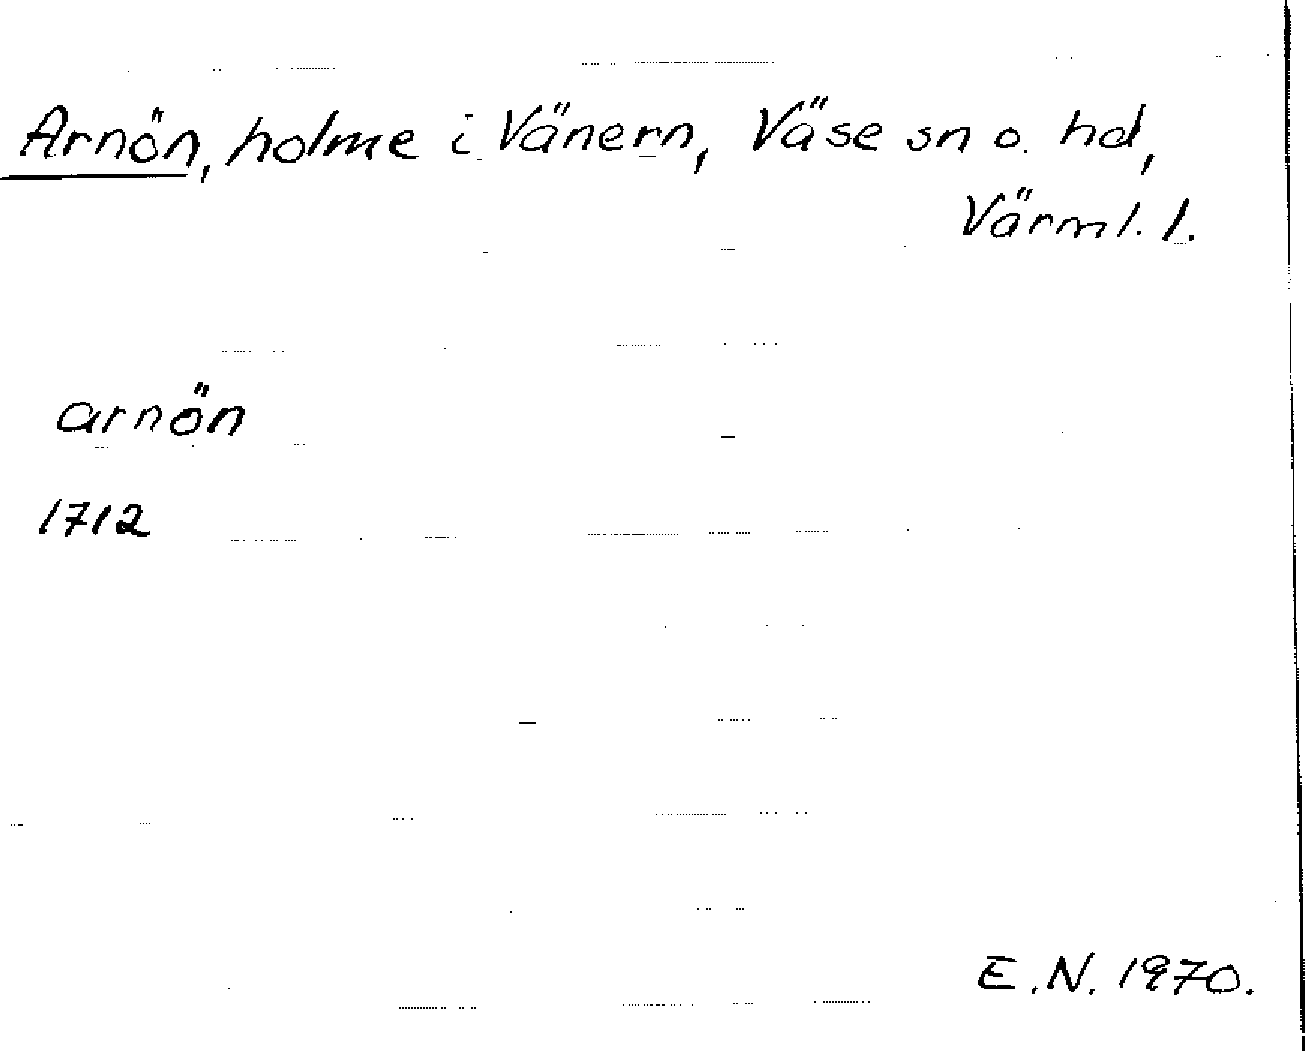 Arnön, holme i Vänern, Väse sn o. hd,
Värml. l.
arnön
1712
E.N. 1970.